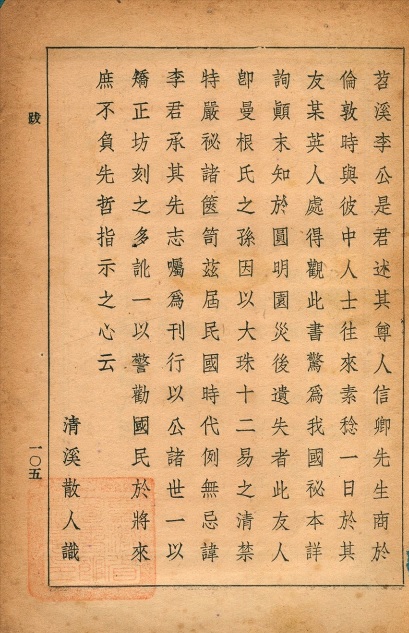 苕溪李公是君述其尊人信卿先生商於
倫敦時與彼中人士往來素稔一日於其
友某英人處得觀此書驚為我國秘本詳
詢顚末知於圓明園災後遺失者此友人
卽曼根氏之孫因以大珠十二易之清禁
特嚴祕諸篋笥茲屆民國時代例無忌諱
李君承其先志囑爲刊行以公諸世一以
矯正坊刻之多訛一以警勸國民於將來
庶不負先哲指示之心云
清溪散人識
跋
一〇五